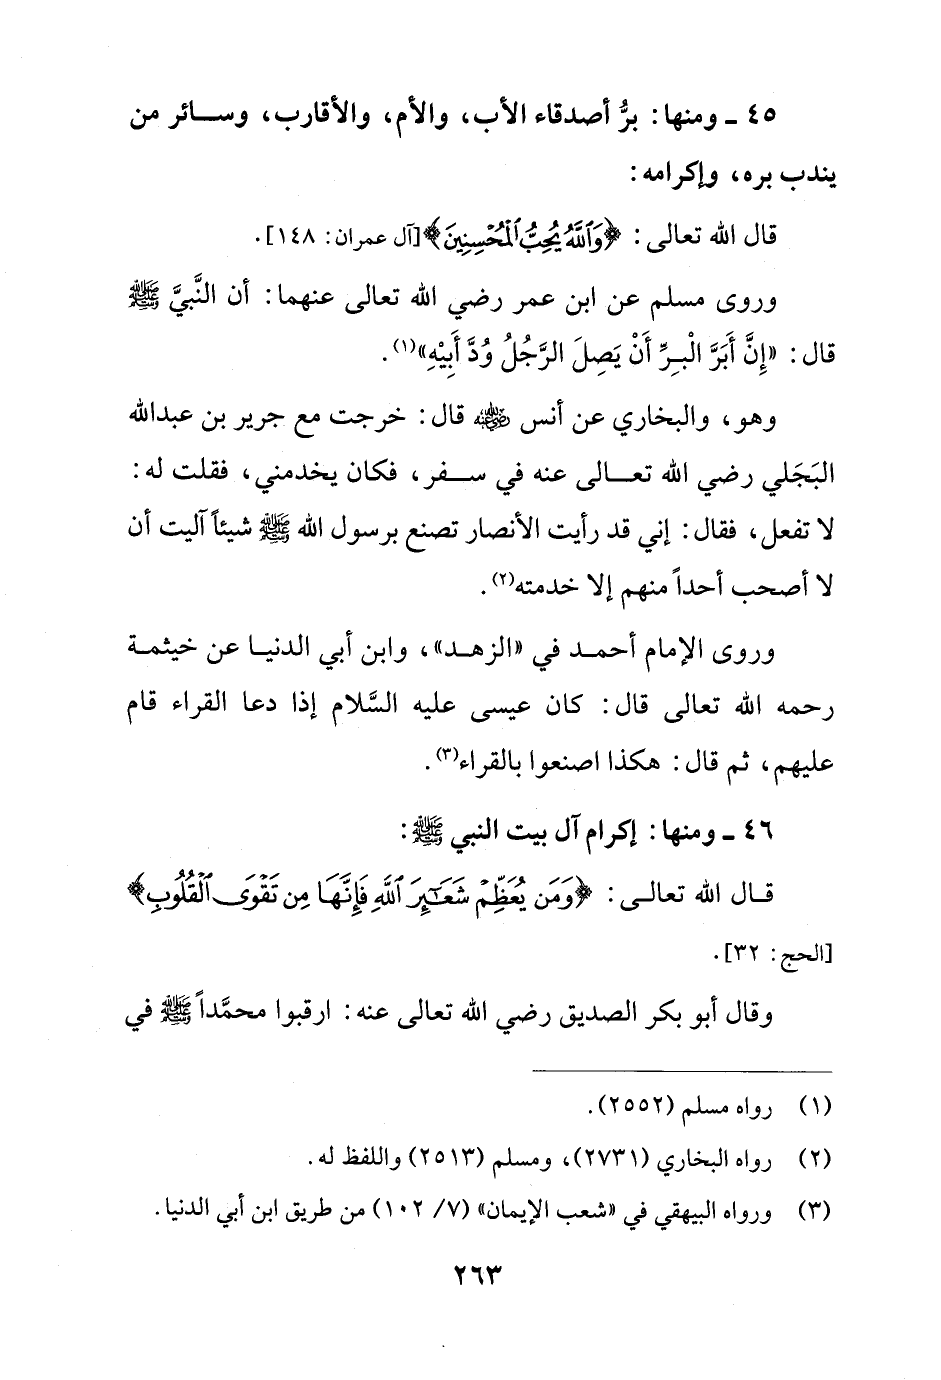 ٤٥ ـ ومنها: برُّ أصدقاء الأب، والأم، والأقارب، وسائر من
يندب بره، وإكرامه:
قال الله تعالى: ﴿وَٱللَّهُ يُحِبُّ ٱلْمُحْسِنِينَ﴾ [آل عمران: ١٤٨].
وروى مسلم عن ابن عمر رضي الله تعالى عنهما: أن النَّبيَّ ﷺ
قال: «إِنَّ أَبَرَّ الْبِرِّ أَنْ يَصِلَ الرَّجُلُ وُدَّ أَبِيْهِ»(١).
وهو، والبخاري عن أنس رضي الله عنه قال: خرجت مع جرير بن عبدالله
البَجَلي رضي الله تعالى عنه في سفر، فكان يخدمني، فقلت له:
لا تفعل، فقال: إني قد رأيت الأنصار تصنع برسول الله ﷺ شيئاً آليت أن
لا أصحب أحداً منهم إلا خدمته(٢).
وروى الإمام أحمد في «الزهد»، وابن أبي الدنيا عن خيثمة
رحمه الله تعالى قال: كان عيسى عليه السَّلام إذا دعا القراء قام
عليهم، ثم قال: هكذا اصنعوا بالقراء(٣).
٤٦ ـ ومنها: إكرام آل بيت النبي ﷺ:
قال الله تعالى: ﴿وَمَن يُعَظِّمْ شَعَٰٓئِرَ ٱللَّهِ فَإِنَّهَا مِن تَقْوَى ٱلْقُلُوبِ﴾
[الحج: ٣٢].
وقال أبو بكر الصديق رضي الله تعالى عنه: ارقبوا محمَّداً ﷺ في
(١) رواه مسلم (٢٥٥٢).
(٢) رواه البخاري (٢٧٣١)، ومسلم (٢٥١٣) واللفظ له.
(٣) ورواه البيهقي في «شعب الإيمان» (٧/ ١٠٢) من طريق ابن أبي الدنيا.
٢٦٣